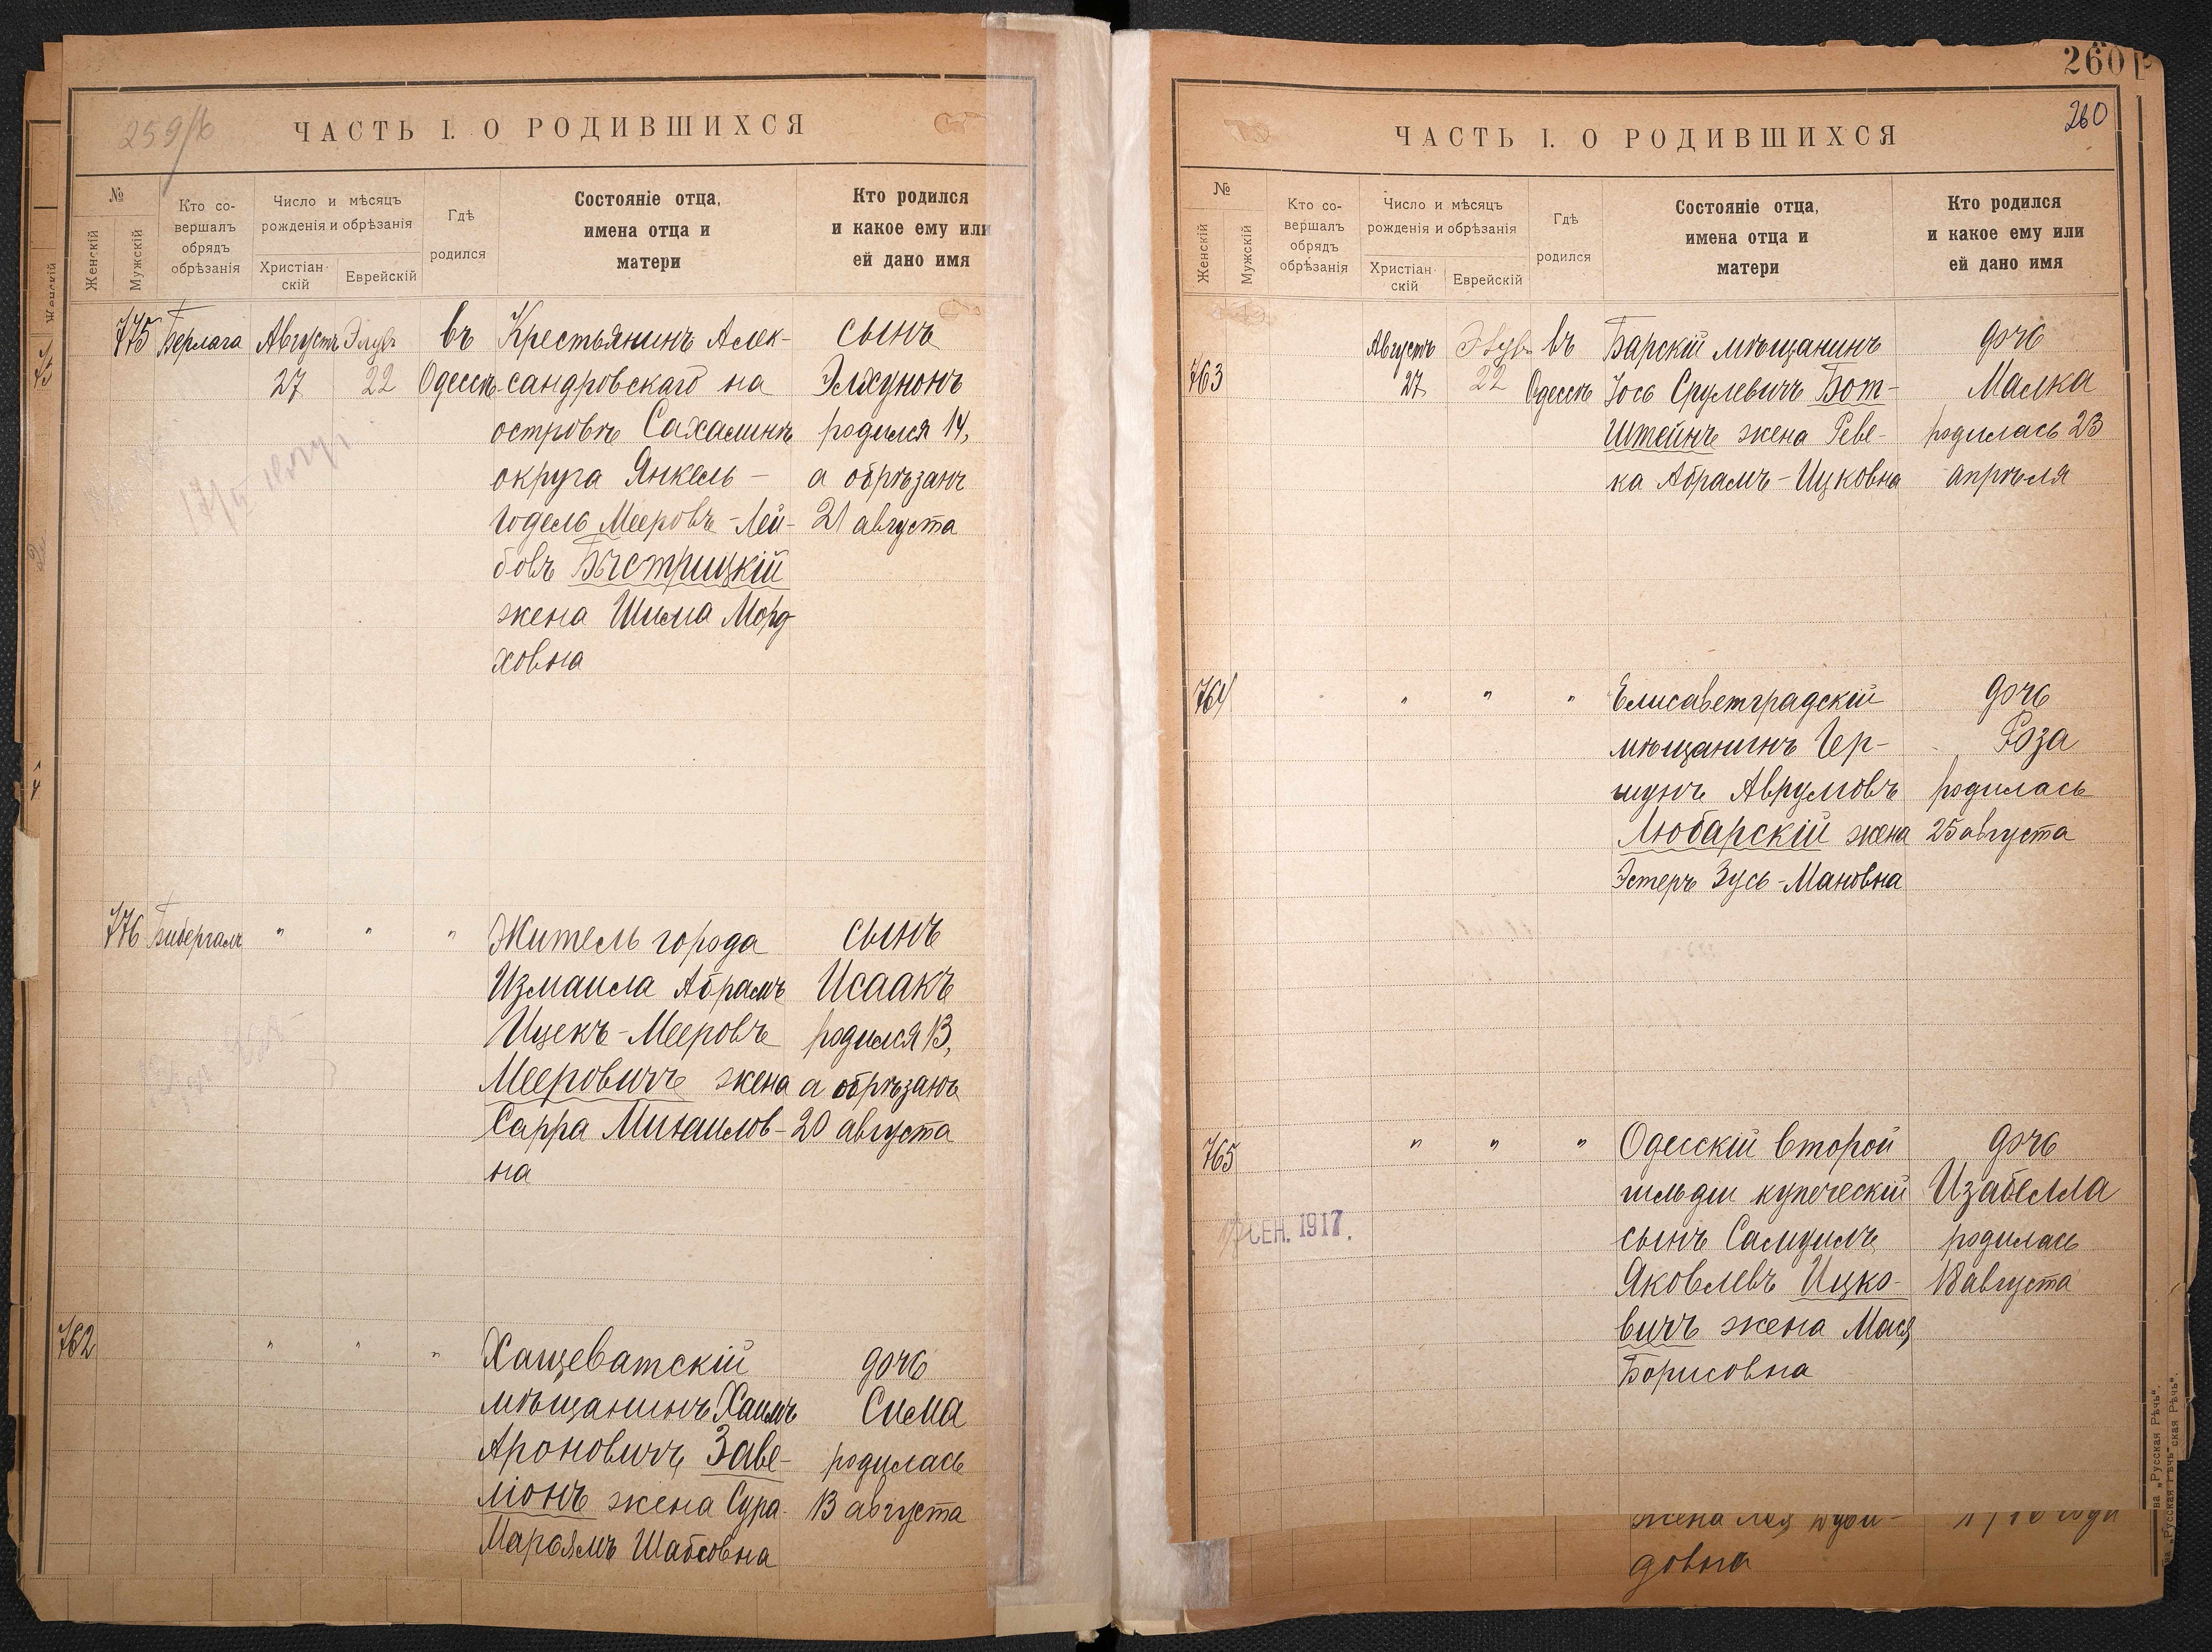 259/б
ЧАСТЬ I. О РОДИВШИХСЯ
№
Женскій
Мужскій
Кто со-
вершалъ
обрядъ
обрѣзанія
Число и мѣсяцъ
рожденія и обрѣзанія
Христіан-
скій
Еврейскій
Гдѣ
родился
Состояніе отца,
имена отца и
матери
Кто родился
и какое ему или
ей дано имя
775 Берлага Августъ Элулъ въ Крестьянинъ Алек- сынъ
27 22 Одессѣ сандровскаго на Элхунонъ
островѣ Сахалинѣ родился 14,
округа Янкель- а обрѣзанъ
Годель Мееровъ-Лей- 21 августа
бовъ Быстрицкій
жена Шима Морд-
ховна
776 Бибергалъ " " " Житель города сынъ
Измаила Абрамъ Исаакъ
Ицекъ-Мееровъ родился 13,
Мееровичъ жена а обрѣзанъ
Сарра Михаилов- 20 августа
на
762 " " " Хащеватскій дочь
мѣщанинъ Хаимъ Сима
Ароновичъ Заве- родилась
ліонъ жена Сура- 13 августа
Марьямъ Шабсовна
260
260
ЧАСТЬ I. О РОДИВШИХСЯ
№
Женскій
Мужскій
Кто со-
вершалъ
обрядъ
обрѣзанія
Число и мѣсяцъ
рожденія и обрѣзанія
Христіан-
скій
Еврейскій
Гдѣ
родился
Состояніе отца,
имена отца и
матери
Кто родился
и какое ему или
ей дано имя
Августъ Элулъ въ Барскій мѣщанинъ дочь
763 27 22 Одессѣ Іось Срулевичъ Бот- Малка
штейнъ жена Реве- родилась 23
ка Абрамъ-Ицковна апрѣля
764 " " " Елисаветградскій дочь
мѣщанинъ Гер- Роза
шунъ Аврумовъ родилась
Любарскій жена 25 августа
Эстеръ Зусь-Мановна
765 " " " Одесскій второй дочь
гильдіи купеческій Изабелла
СЕН. 1917. сынъ Самуилъ родилась
Яковлевъ Ицко- 18 августа
вичъ жена Мася
Борисовна
жена
довна